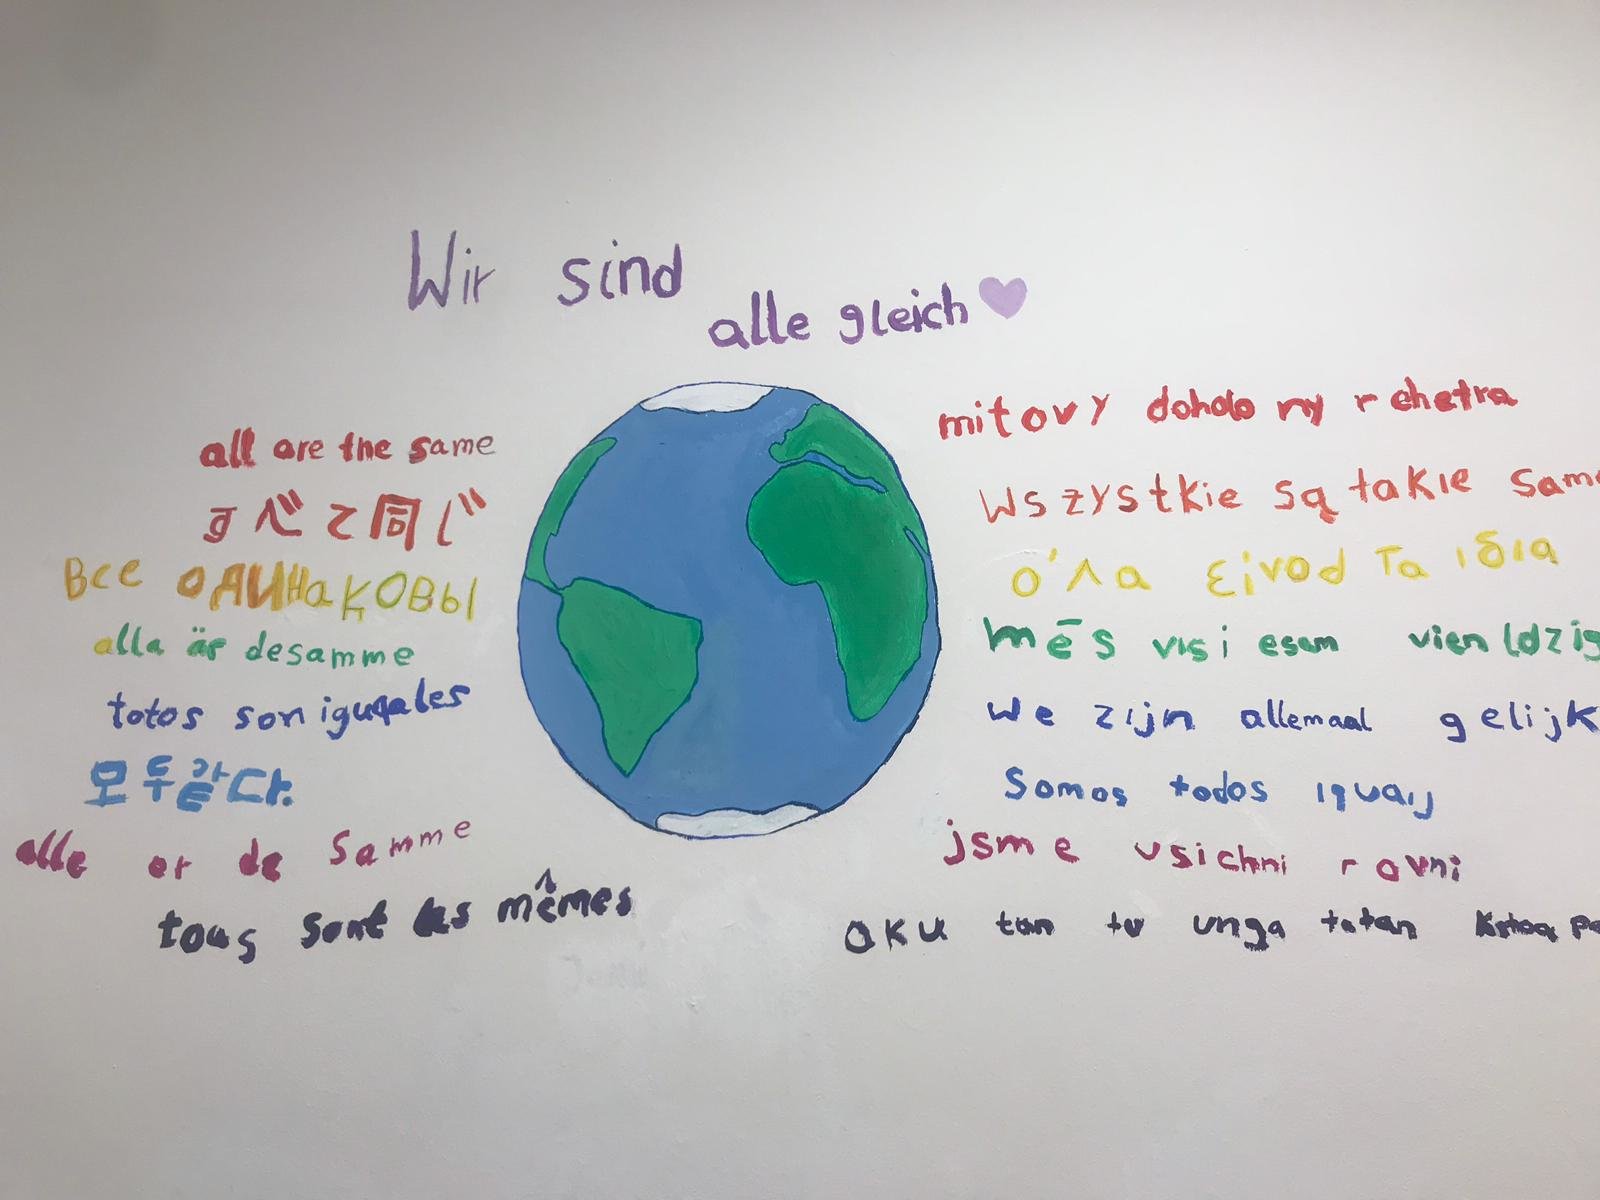 Wir sind
alle gleich
all are the same
すべて同じ
Все одинаковы
alla är desamme
totos son iguqales
모두같다.
alle er de samme
tous sont les mêmes
mitovy doholo ny rehetra
Wszystkie są takie
ό'λα είνοd τα ιδια
mēs visi esam
we zijn allemaal gelijk
Somos todos iquaij
jsme vsichni rovni
oku tan tu unga tatan